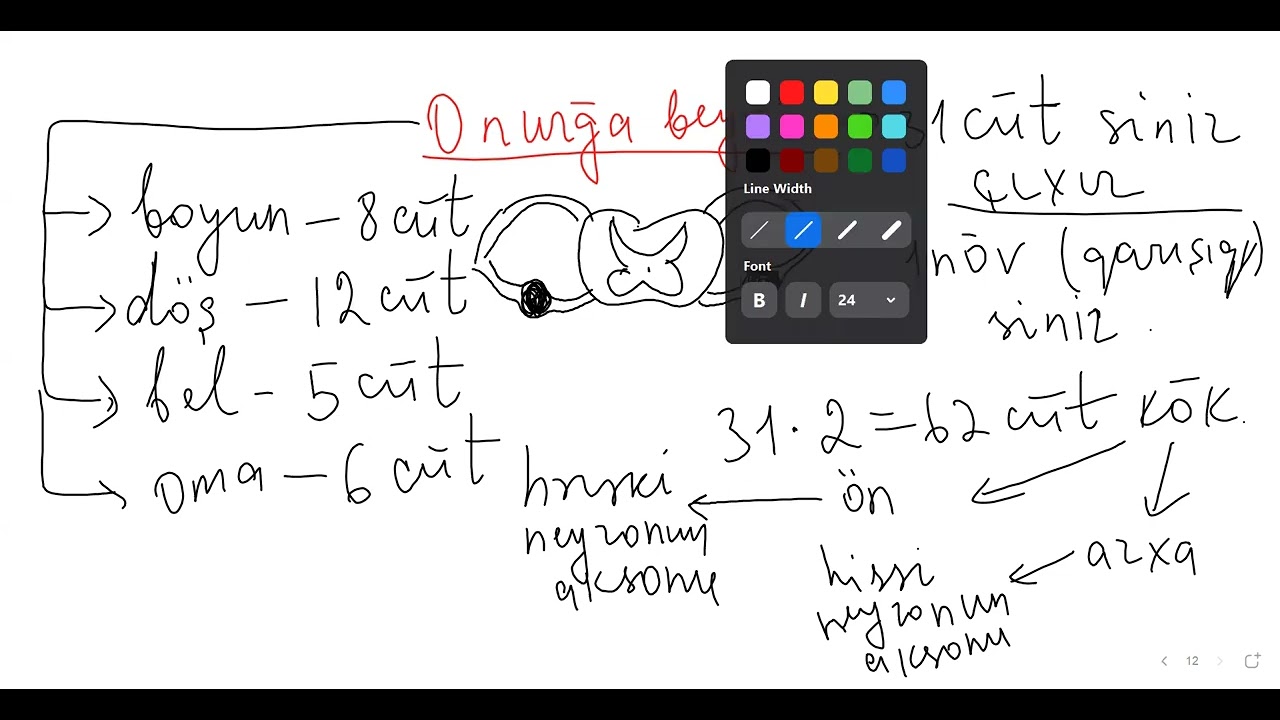 Onurğa bey 31 cüt siniz
çıxır
boyun – 8 cüt
1 növ (qarışıq)
siniz.
döş – 12 cüt
bel – 5 cüt
oma – 6 cüt
31 · 2 = 62 cüt kök.
ön
hərəki
neyronun
aksonu
arxa
hissi
neyronun
aksonu
Line Width
Font
B I 24
12